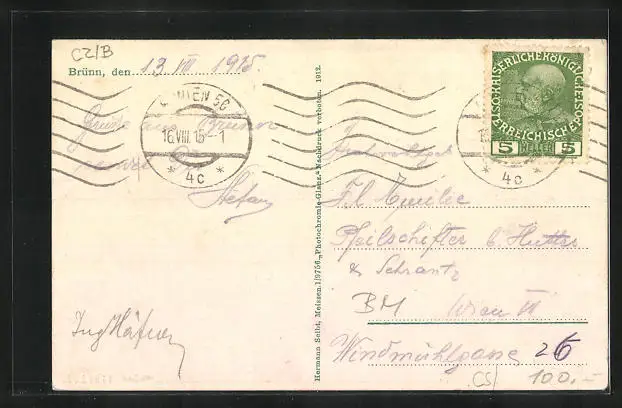 CZ/B
Brünn, den 13 VIII 1915.
WIEN 56
16.VIII.15 - 1
* 4c *
Grüße aus Brünn
Stefan
Hermann Seibt, Meissen. 1/9756. „Photochromie-Glanz.“ Nachdruck verboten. 1912.
KAISERLICHE KÖNIGLICHE ÖSTERREICHISCHE POST
5 HELLER 5
* 4c *
Frl Emilie
Pfeilschifter b. Hutters
& Schrantz
BM Wien VI
Windmühlgasse 26
CS/ 100.-